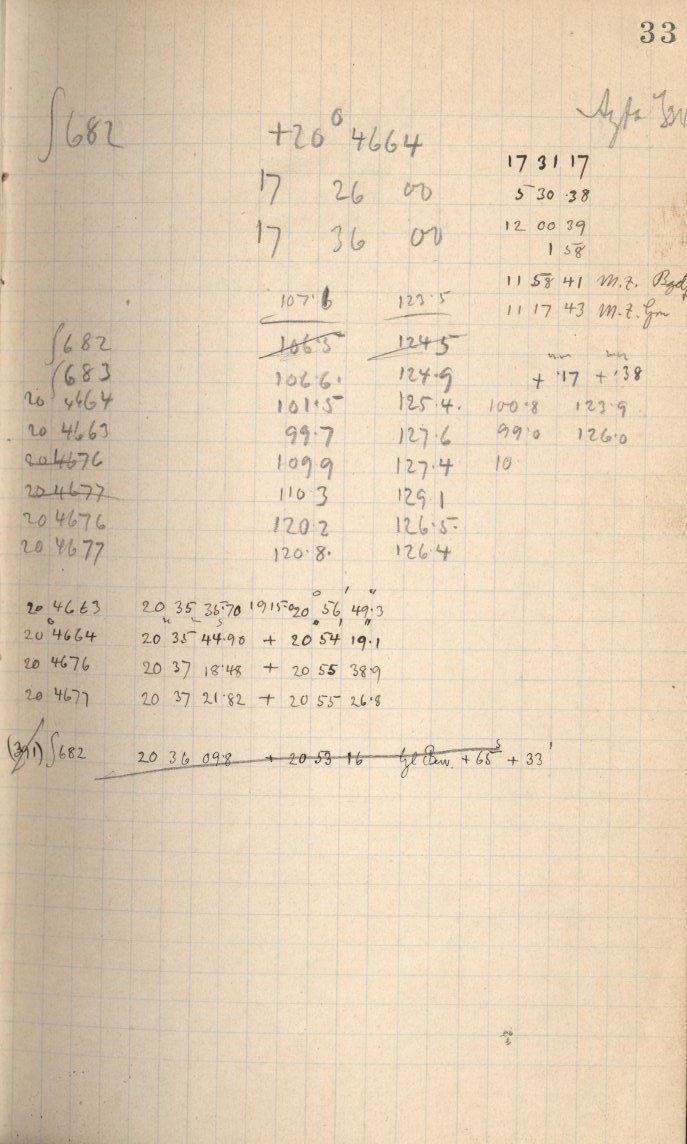 33
∫682 +20° 4664
17 26 00
17 36 00
17 31 17
5 30 38
12 00 39
1 58
11 58 41 M.Z.
11 17 43 M.Z. Grw
107.6 123.5
∫682 106.5 124.5
∫683 106.6 124.9 +.17 +.38
20 4464 101.5 125.4 100.8 123.9
20 4663 99.7 127.6 99.0 126.0
20 4676 109.9 127.4 10
20 4677 110.3 129.1
20 4676 120.2 126.5
20 4677 120.8 126.4
20 4663 20 35 36.70 1915.0 20° 56' 49".3
20° 4664 20h 35m 44s.90 + 20° 54' 19".1
20 4676 20 37 18.48 + 20 55 38.9
20 4677 20 37 21.82 + 20 55 26.8
(391) ∫682 20 36 09.8 + 20 53 16 tgl Bew. +65s +33'